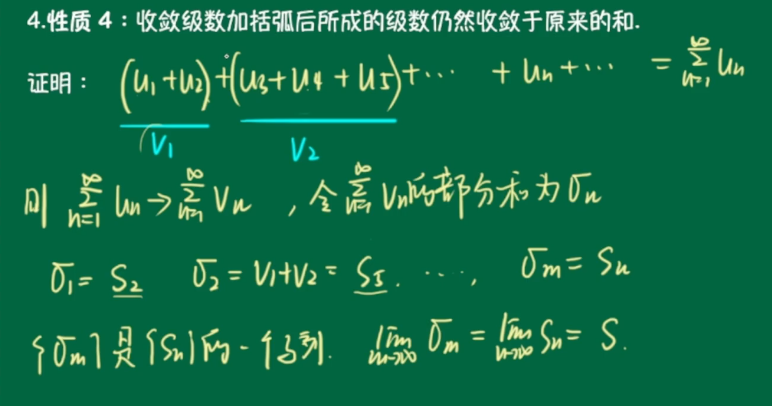 4.性质 4：收敛级数加括弧后所成的级数仍然收敛于原来的和.
证明： (u₁+u₂)+(u₃+u₄+u₅)+⋯ + uₙ+⋯ = ∑_{n=1}^{∞} uₙ
V₁ V₂
则 ∑_{n=1}^{∞} uₙ → ∑_{n=1}^{∞} Vₙ ，令 ∑_{n=1}^{∞} Vₙ的部分和为 σₙ
σ₁ = S₂ σ₂ = V₁+V₂ = S₅. ⋯, σm = Sₙ
{σm}是{Sₙ}的一个子列. lim_{m→∞} σm = lim_{n→∞} Sₙ = S.